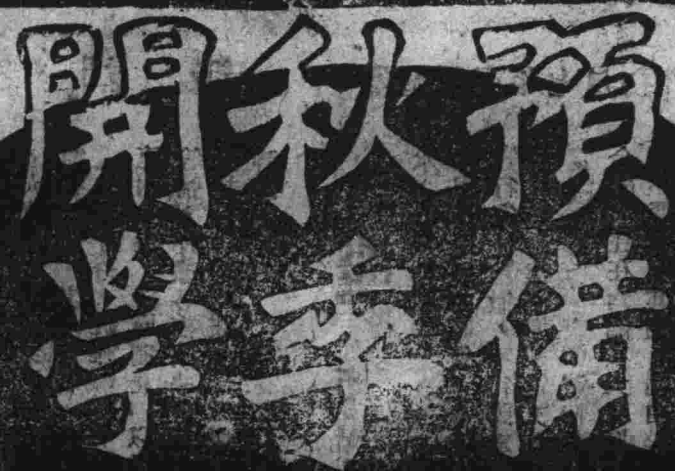 預備
秋季
開學